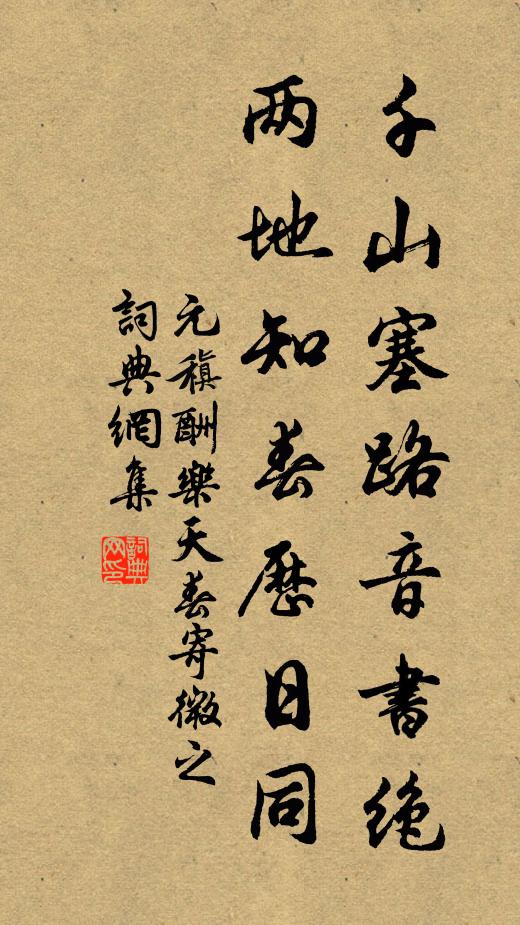 千山塞路音書絶
两地知春歷日同
元稹酬樂天春寄微之
詞典網集
詞典网印